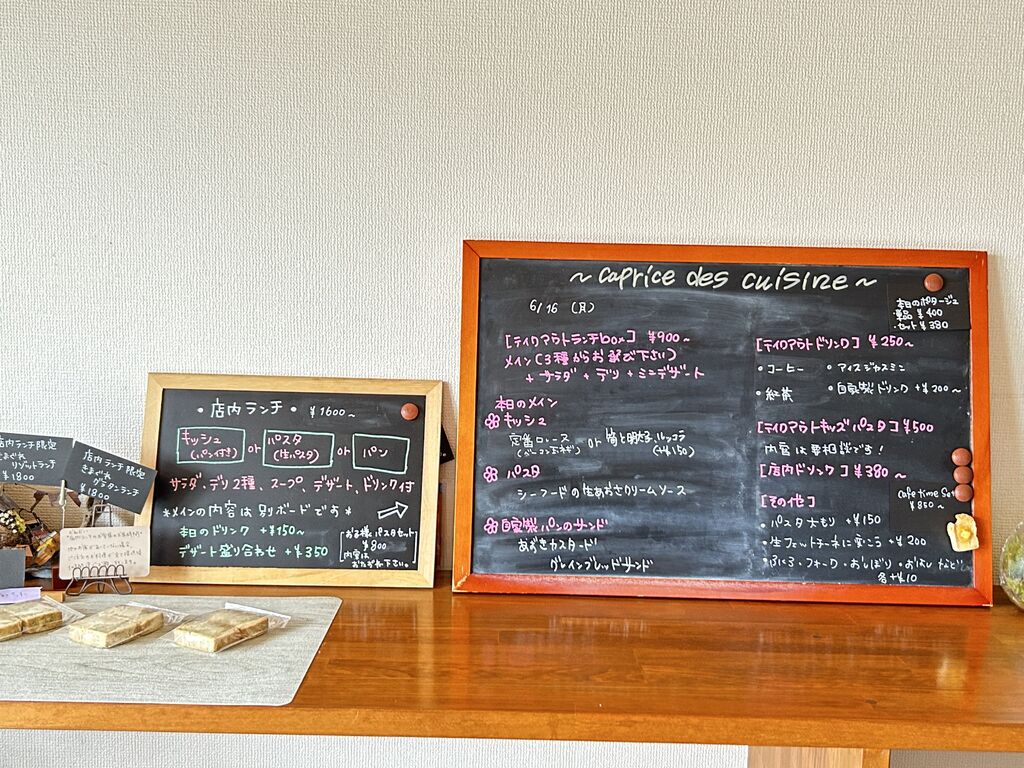 店内ランチ限定
きまぐれ
リゾットランチ
¥1800
店内ランチ限定
きまぐれ
グラタンランチ
¥1800
・店内ランチ・ ¥1600~
キッシュ
(パン付き)
or
パスタ
(生パスタ)
or
パン
サラダ、デリ2種、スープ、デザート、ドリンク付
*メインの内容は別ボードです*
本日のドリンク +¥150~
デザート盛り合わせ +¥350
お子様パスタセット
¥800
内容は
おたずね下さい。
~ caprice des cuisine ~
6/16 (月)
[テイクアウトランチbox] ¥900~
メイン(3種からお選び下さい)
+ サラダ + デリ + ミニデザート
本日のメイン
キッシュ
定番ロレーヌ or 筍と明太
(ベーコン玉ネギ) (+¥150)
パスタ
シーフードの生あおさクリームソース
自家製パンのサンド
あずきカスタード
グレインブレッドサンド
本日のポタージュ
・単品 ¥400
・セット ¥380
[テイクアウトドリンク] ¥250~
・コーヒー ・アイスジャスミン
・紅茶 ・自家製ドリンク +¥200~
[テイクアウトキッズパスタ] ¥500
内容は要相談です!
[店内ドリンク] ¥380~
Cafe time Set
¥850~
[その他]
・パスタ大もり +¥150
・生フェットチーネに変こう +¥200
・ふくろ・フォーク・おしぼり・おはし など
各+¥10